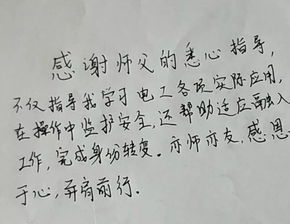 感谢师父的悉心指导，
不仅指导我学习电工各项实际应用，
在操作中监护安全，还帮助适应融入
工作，完成身份转变。亦师亦友，感恩
于心，并肩前行．